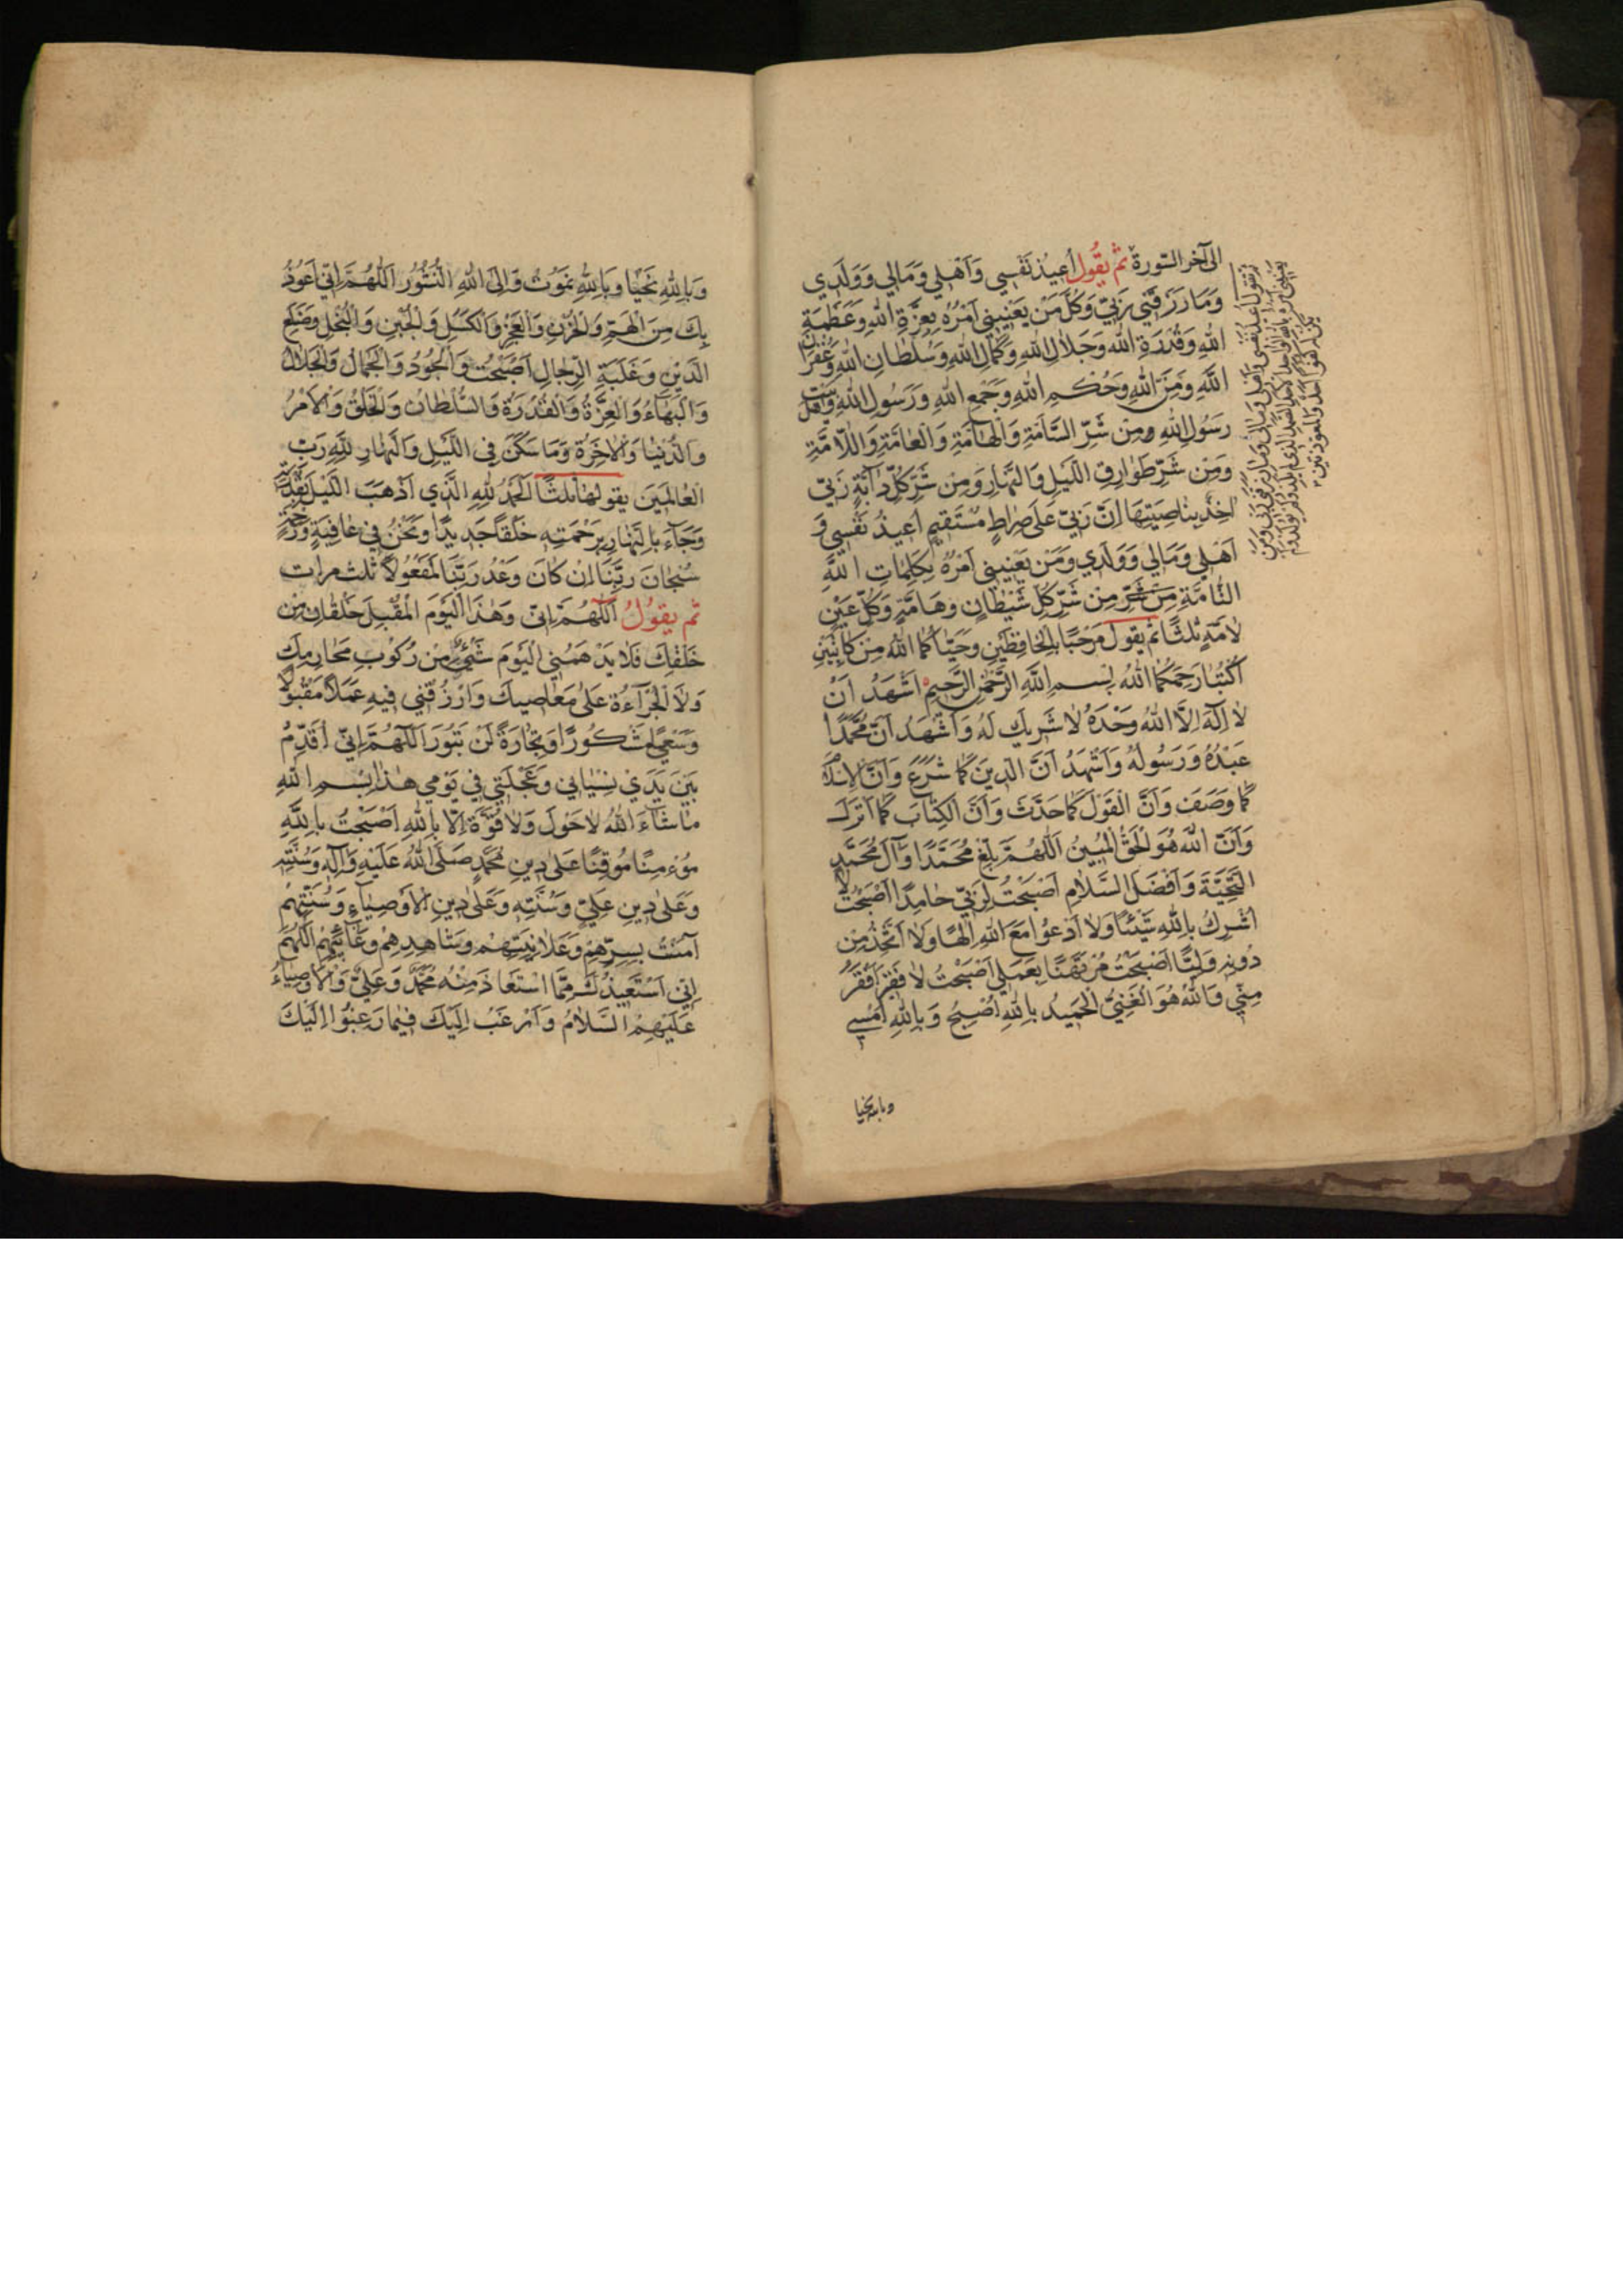 الى آخر السّورة ثم يقول اُعيذ نَفْسِي وَاَهْلِي وَمَالِي وَوَلَدِي
وَمَا رَزَقَنِي رَبّي وَكُلَّ مَنْ يَعْنِينِي اَمْرُهُ بِعِزَّةِ اللهِ وَعَظَمَةِ
اللهِ وَقُدْرَةِ اللهِ وَجَلَالِ اللهِ وَكَمَالِ اللهِ وَسُلْطَانِ اللهِ وَغُفْرَانِ
اللَّهِ وَمَنِّ اللهِ وَحُكْمِ اللهِ وَجَمْعِ اللهِ وَرَسُولِ اللهِ وَاَهْلِ بَيْتِ
رَسُولِ اللهِ ومِنْ شَرِّ السَّامَّةِ وَالْهَامَّةِ وَالْعَامَّةِ وَاللَّامَّةِ
وَمِنْ شَرِّ طَوَارِقِ اللَّيْلِ وَالنَّهَارِ وَمِنْ شَرِّ كُلِّ دَابَّةٍ رَبّي
آخِذٌ بِنَاصِيَتِهَا اِنَّ رَبّي عَلَى صِرَاطٍ مُسْتَقِيمٍ اُعِيذُ نَفْسِي وَ
اَهْلِي وَمَالِي وَوَلَدِي وَمَنْ يَعْنِينِي اَمْرُهُ بِكَلِمَاتِ اللَّهِ
التَّامَّةِ مِنْ شَرِّ مِن شَرِّ كُلِّ شَيْطَانٍ وَهَامَّةٍ وَكُلِّ عَيْنٍ
لَامَّةٍ ثلثًا ثم يقول مَرْحَبًا بِالْحَافِظَيْنِ وَحَيَّاكُمَا اللهُ مِنْ كَاتِبَيْنِ
اُكْتُبَا رَحِمَكُمَا اللهُ بِسْمِ اللَّهِ الرَّحْمٰنِ الرَّحِيمِ اَشْهَدُ اَنْ
لَا اِلٰهَ اِلَّا اللهُ وَحْدَهُ لَا شَرِيكَ لَهُ وَاَشْهَدُ اَنَّ مُحَمَّدًا
عَبْدُهُ وَرَسُولُهُ وَاَشْهَدُ اَنَّ الدِّينَ كَمَا شَرَعَ وَاَنَّ الاِسْلَامَ
كَمَا وَصَفَ وَاَنَّ الْقَوْلَ كَمَا حَدَّثَ وَاَنَّ الْكِتَابَ كَمَا اَنْزَلَ
وَاَنَّ اللهَ هُوَ الْحَقُّ الْمُبِينُ اَللّٰهُمَّ بَلِّغْ مُحَمَّدًا وَآلَ مُحَمَّدٍ
التَّحِيَّةَ وَاَفْضَلَ السَّلَامِ اَصْبَحْتُ لِرَبِّي حَامِدًا اَصْبَحْتُ لا
اُشْرِكُ بِاللهِ شَيْئًا وَلَا اَدْعُوا مَعَ اللهِ اِلٰهًا وَلَا اَتَّخِذُ مِن
دُونِهِ وَلِيًّا اَصْبَحْتُ مُرْتَهَنًا بِعَمَلِي اَصْبَحْتُ لَا فَقِيرَ اَفْقَرُ
مِنِّي وَاللهُ هُوَ الْغَنِيُّ الْحَمِيدُ بِاللهِ اُصْبِحُ وَبِاللهِ اُمْسِي
وبالله نحيا
وَبِاللهِ نَحْيَا وَبِاللهِ نَمُوتُ وَاِلَى اللهِ النُّشُورُ اَللّٰهُمَّ اِنِّي اَعُوذُ
بِكَ مِنَ الْهَمِّ وَالْحُزْنِ وَالْعَجْزِ وَالْكَسَلِ وَالْجُبْنِ وَالْبُخْلِ وَضَلَعِ
الدَّيْنِ وَغَلَبَةِ الرِّجَالِ اَصْبَحْتُ وَالْجُودُ وَالْجَمَالُ وَالْجَلَالُ
وَالْبَهَاءُ وَالْعِزَّةُ وَالْقُدْرَةُ وَالسُّلْطَانُ وَالْخَلْقُ وَالْاَمْرُ
وَالدُّنْيَا وَالْاٰخِرَةُ وَمَا سَكَنَ فِي اللَّيْلِ وَالنَّهَارِ لِلّٰهِ رَبِّ
الْعَالَمِينَ يقولها ثلثًا اَلْحَمْدُ لِلهِ الَّذِي اَذْهَبَ اللَّيْلَ بِقُدْرَتِهِ
وَجَآءَ بِالنَّهَارِ بِرَحْمَتِهِ خَلْقًا جَدِيدًا وَنَحْنُ فِي عَافِيَةٍ وَرَحْمَةٍ
سُبْحَانَ رَبِّنَا اِنْ كَانَ وَعْدُ رَبِّنَا لَمَفْعُولًا ثلث مرات
ثم يقُولُ اَللّٰهُمَّ اِنّي وَهٰذَا الْيَوْمَ الْمُقْبِلَ خَلْقَانِ مِنْ
خَلْقِكَ فَلَا يَدْهَمُنِي الْيَوْمَ شَيْءٌ مِنْ رُكُوبِ مَحَارِمِكَ
وَلَا الْجُرْاَةِ عَلٰى مَعَاصِيكَ وَارْزُقْنِي فِيهِ عَمَلًا مَقْبُولًا
وَسَعْيًا مَشْكُورًا وَتِجَارَةً لَنْ تَبُورَ اَللّٰهُمَّ اِنِّي اُقَدِّمُ
بَيْنَ يَدَيْ نِسْيَانِي وَعَجَلَتِي فِي يَوْمِي هٰذَا بِسْمِ اللهِ
مَا شَآءَ اللهُ لَا حَوْلَ وَلَا قُوَّةَ اِلَّا بِاللهِ اَصْبَحْتُ بِاللّٰهِ
مُؤْمِنًا مُوقِنًا عَلٰى دِينِ مُحَمَّدٍ صَلَّى اللهُ عَلَيْهِ وَآلِهِ وَسُنَّتِهِ
وَعَلٰى دِينِ عَلِيٍّ وَسُنَّتِهِ وَعَلٰى دِينِ الْاَوْصِيَآءِ وَسُنَّتِهِمْ
آمَنْتُ بِسِرِّهِمْ وَعَلَانِيَتِهِمْ وَشَاهِدِهِمْ وَغَائِبِهِمْ اَللّٰهُمَّ
اِنِّي اَسْتَعِيذُ بِكَ مِمَّا اسْتَعَاذَ مِنْهُ مُحَمَّدٌ وَعَلِيٌّ وَالْاَوْصِيَآءُ
عَلَيْهِمْ السَّلَامُ وَاَرْغَبُ اِلَيْكَ فِيمَا رَغِبُوا اِلَيْكَ